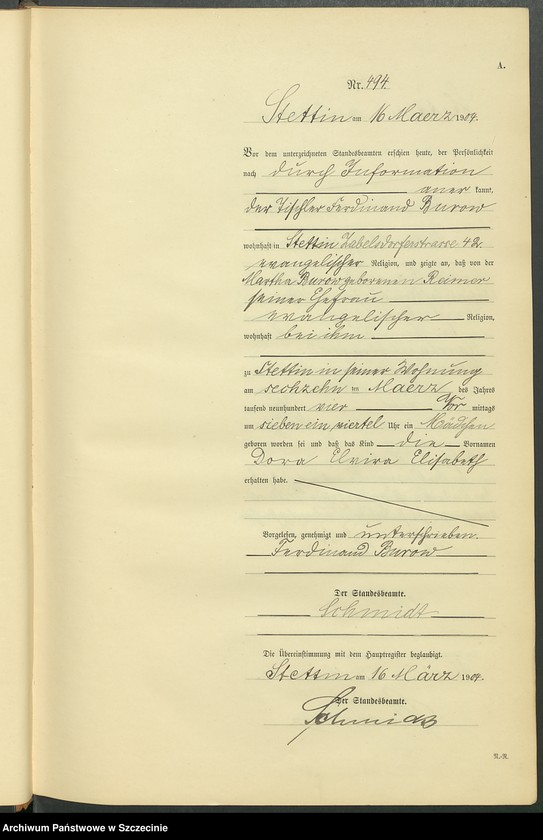 A.
Nr. 494.
Stettin am 16 Maerz 1904.
Vor dem unterzeichneten Standesbeamten erschien heute, der Persönlichkeit
nach durch Information
aner kannt,
der Tischler Ferdinand Burow
wohnhaft in Stettin Zabelsdorferstrasse 42
evangelischer Religion, und zeigte an, daß von der
Martha Burow geborenen Reimer
seiner Ehefrau
evangelischer Religion,
wohnhaft bei ihm
zu Stettin in seiner Wohnung
am sechzehn ten Maerz des Jahres
tausend neunhundert vier Vor mittags
um sieben ein viertel Uhr ein Mädchen
geboren worden sei und daß das Kind die Vornamen
Dora Elvira Elisabeth
erhalten habe.
Vorgelesen, genehmigt und unterschrieben.
Ferdinand Burow
Der Standesbeamte.
Schmidt
Die Übereinstimmung mit dem Hauptregister beglaubigt.
Stettin am 16 März 1904.
Der Standesbeamte.
Schmidt
N.-R.
Archiwum Państwowe w Szczecinie